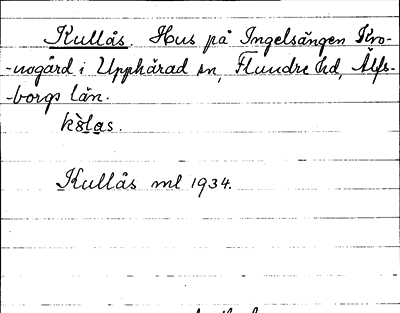 Kullås. Hus på Ingelsängen Kro-
-nogård i Upphärad sn, Flundre hd, Älfs-
-borgs län.
Kullås ml 1934.